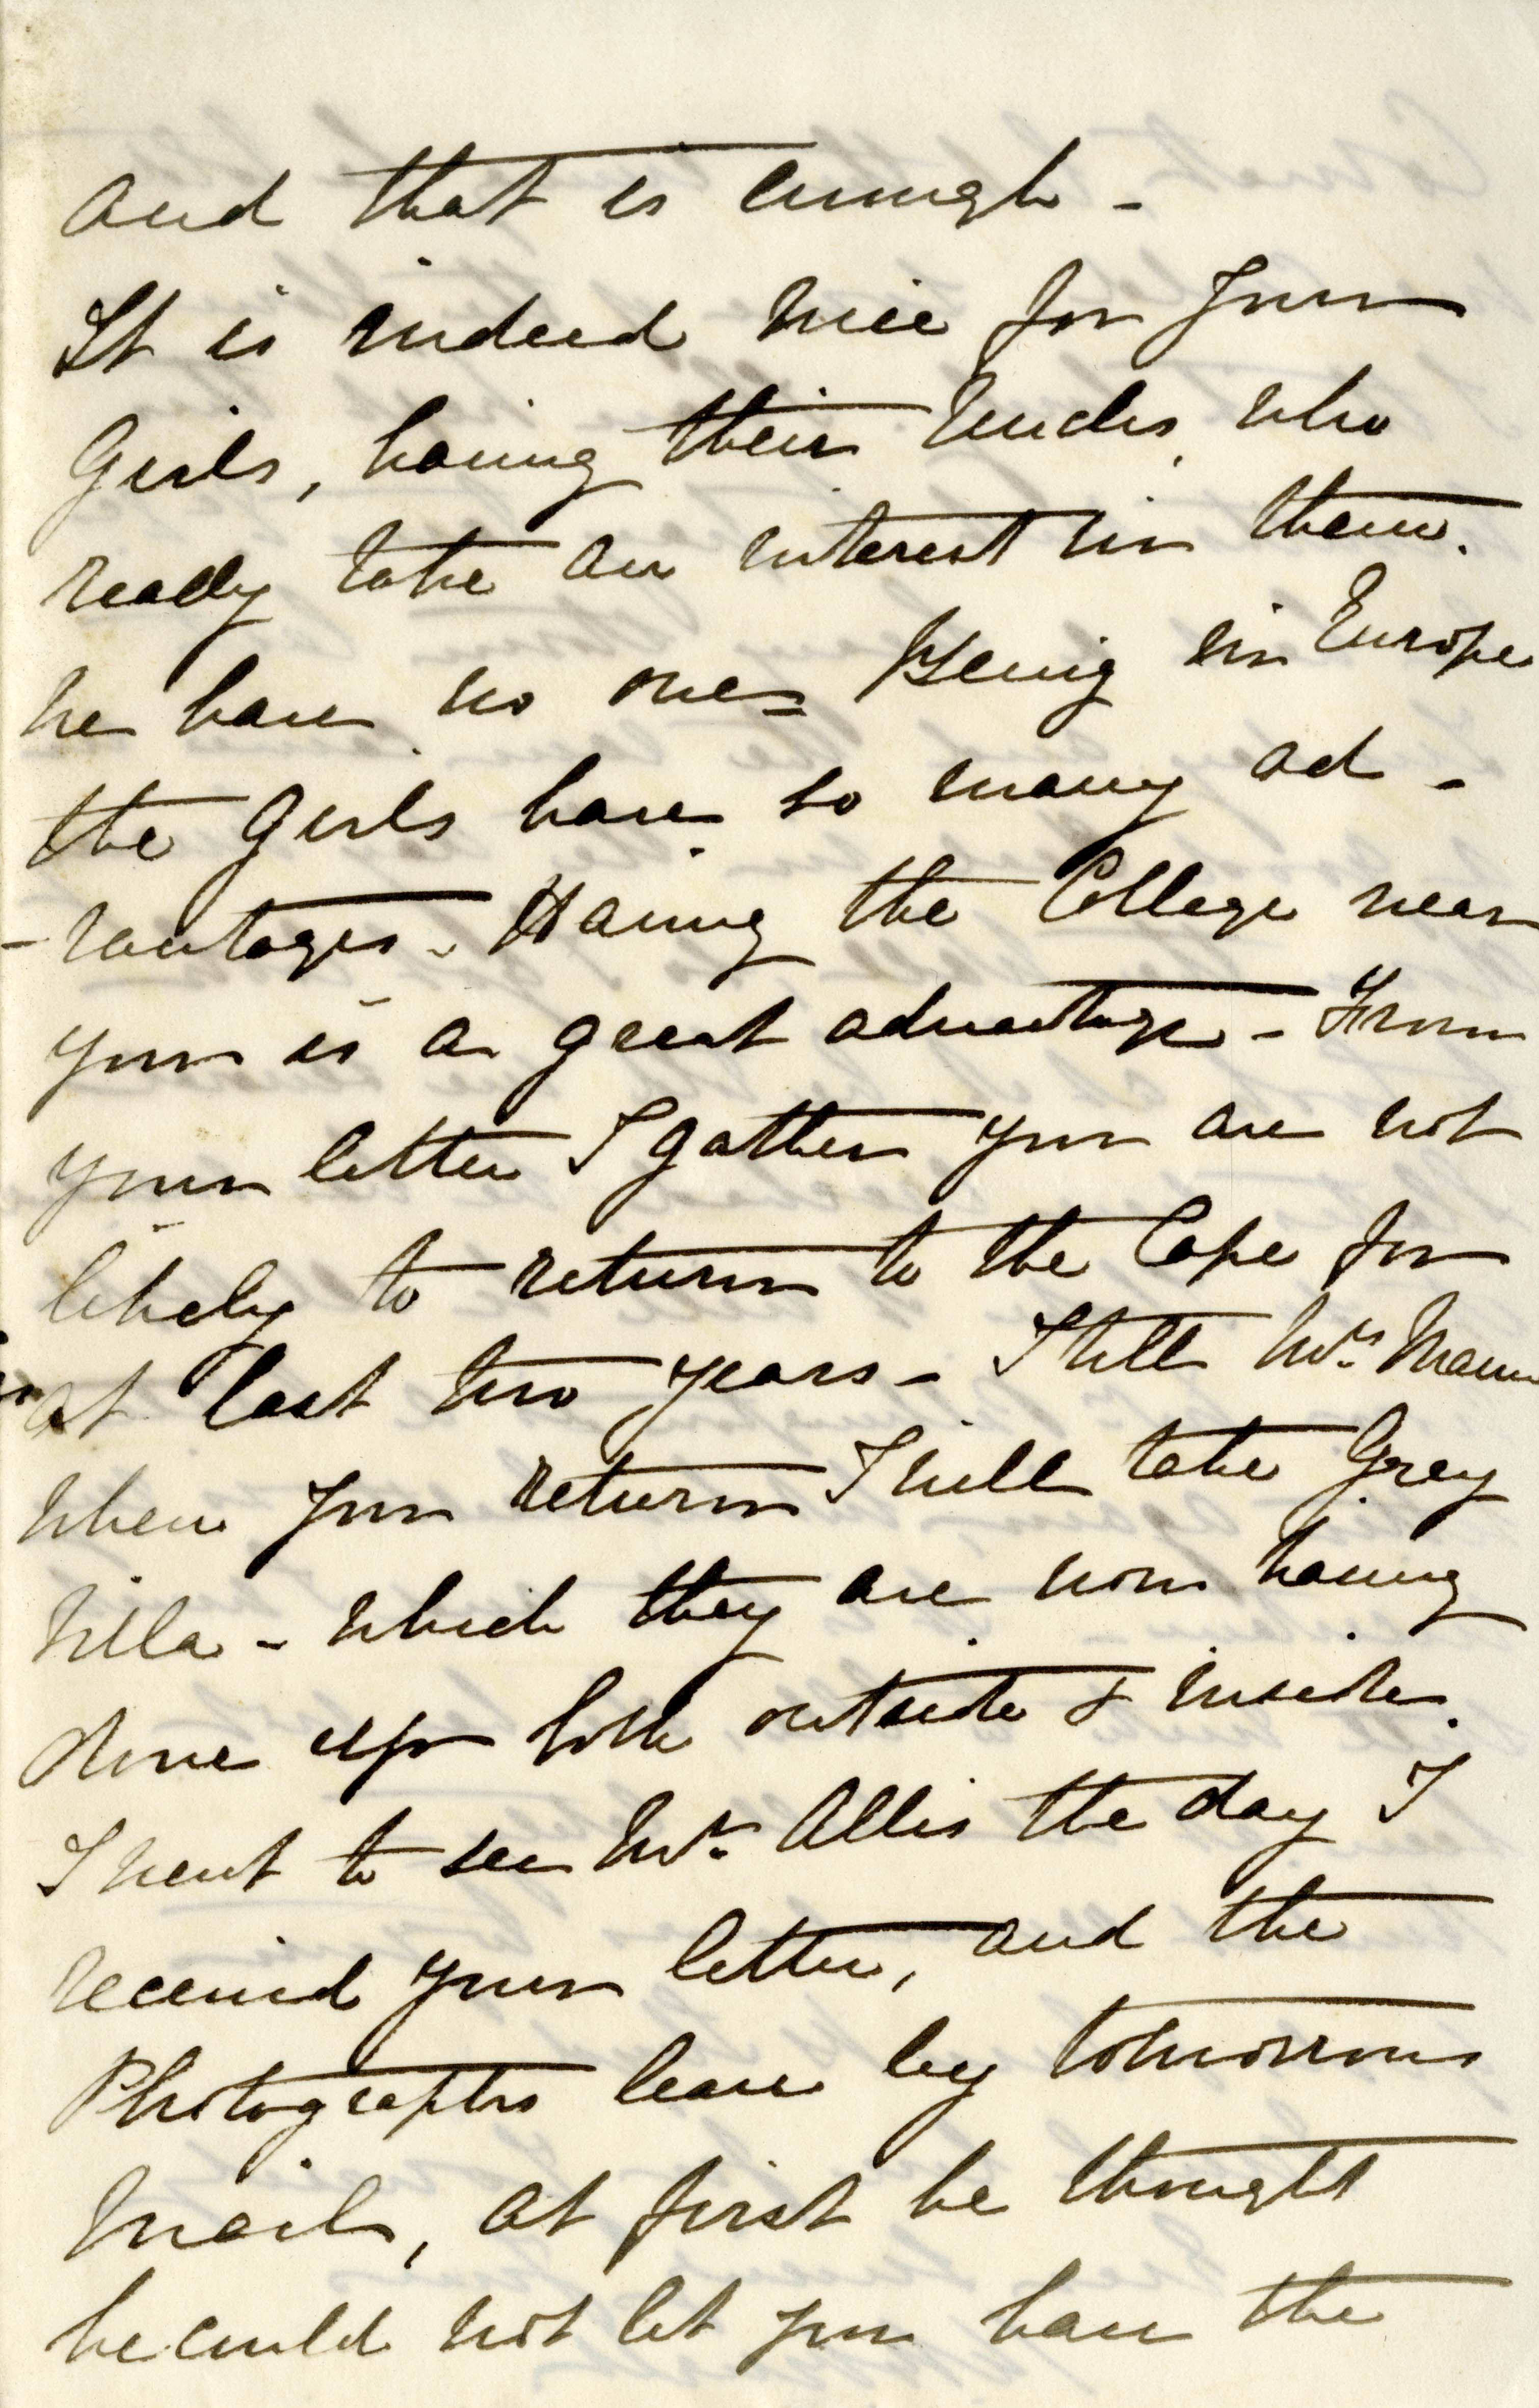 and that is enough -
It is indeed nice for your
Girls, having their Uncles, who
really take an interest in them.
we have no one = Being in Europe
the Girls have so many ad -
- vantages - Having the College near
you is a great advantage - From
your letter I gather you are not
likely to return to the Cape for
at least two years - I tell Mrs. Mann
when you return I will take Grey
Villa - which they are now having
done up both outside & inside.
I went to see Mr. Allis the day I
received your letter, and the
Photographs leave by tomorrows
mail, at first he thought
he could not let you have the